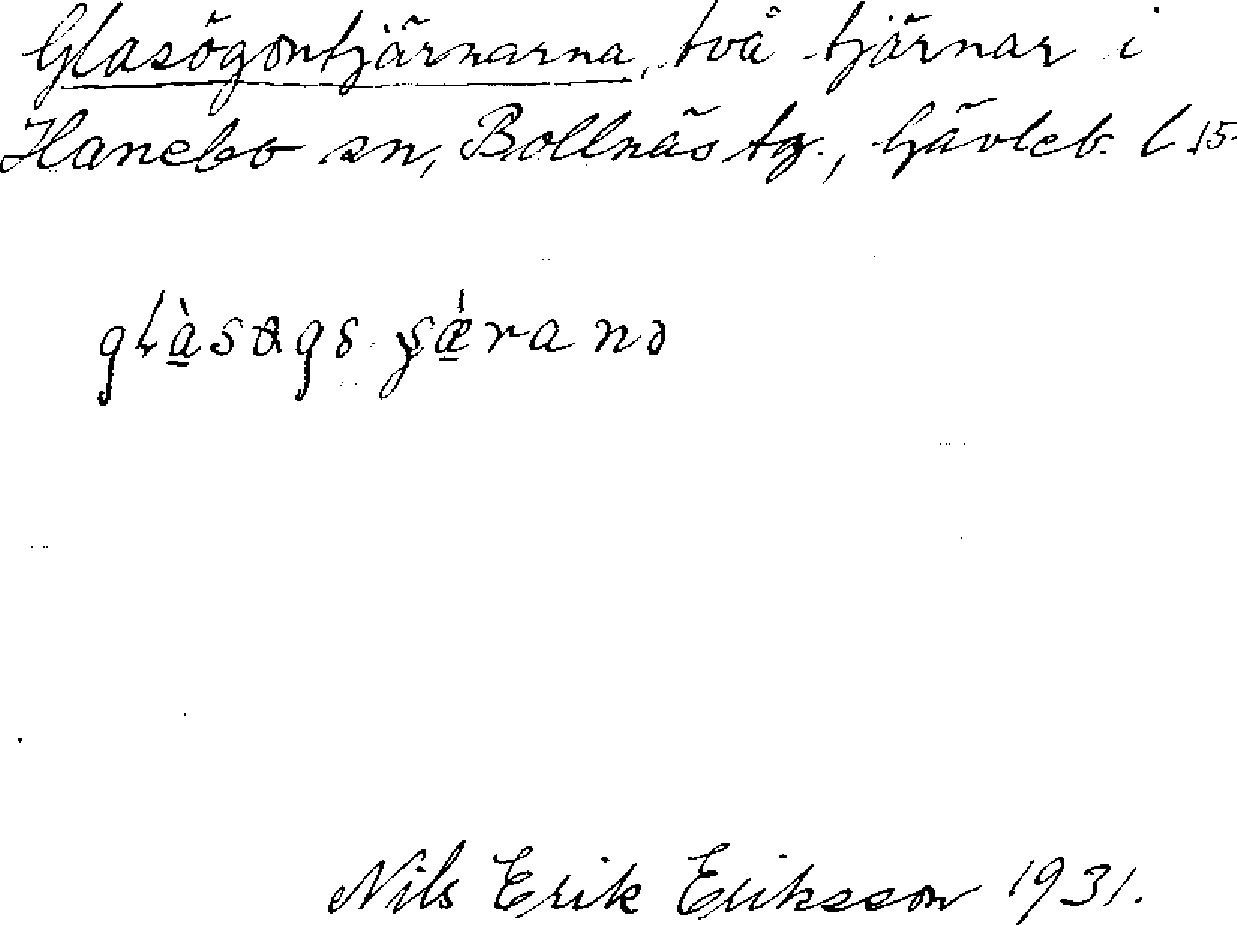 Glasögontjärnarna, två tjärnar i
Hanebo sn, Bollnäs tg., Gävleb. l 15.
Nils Erik Eriksson 1931.